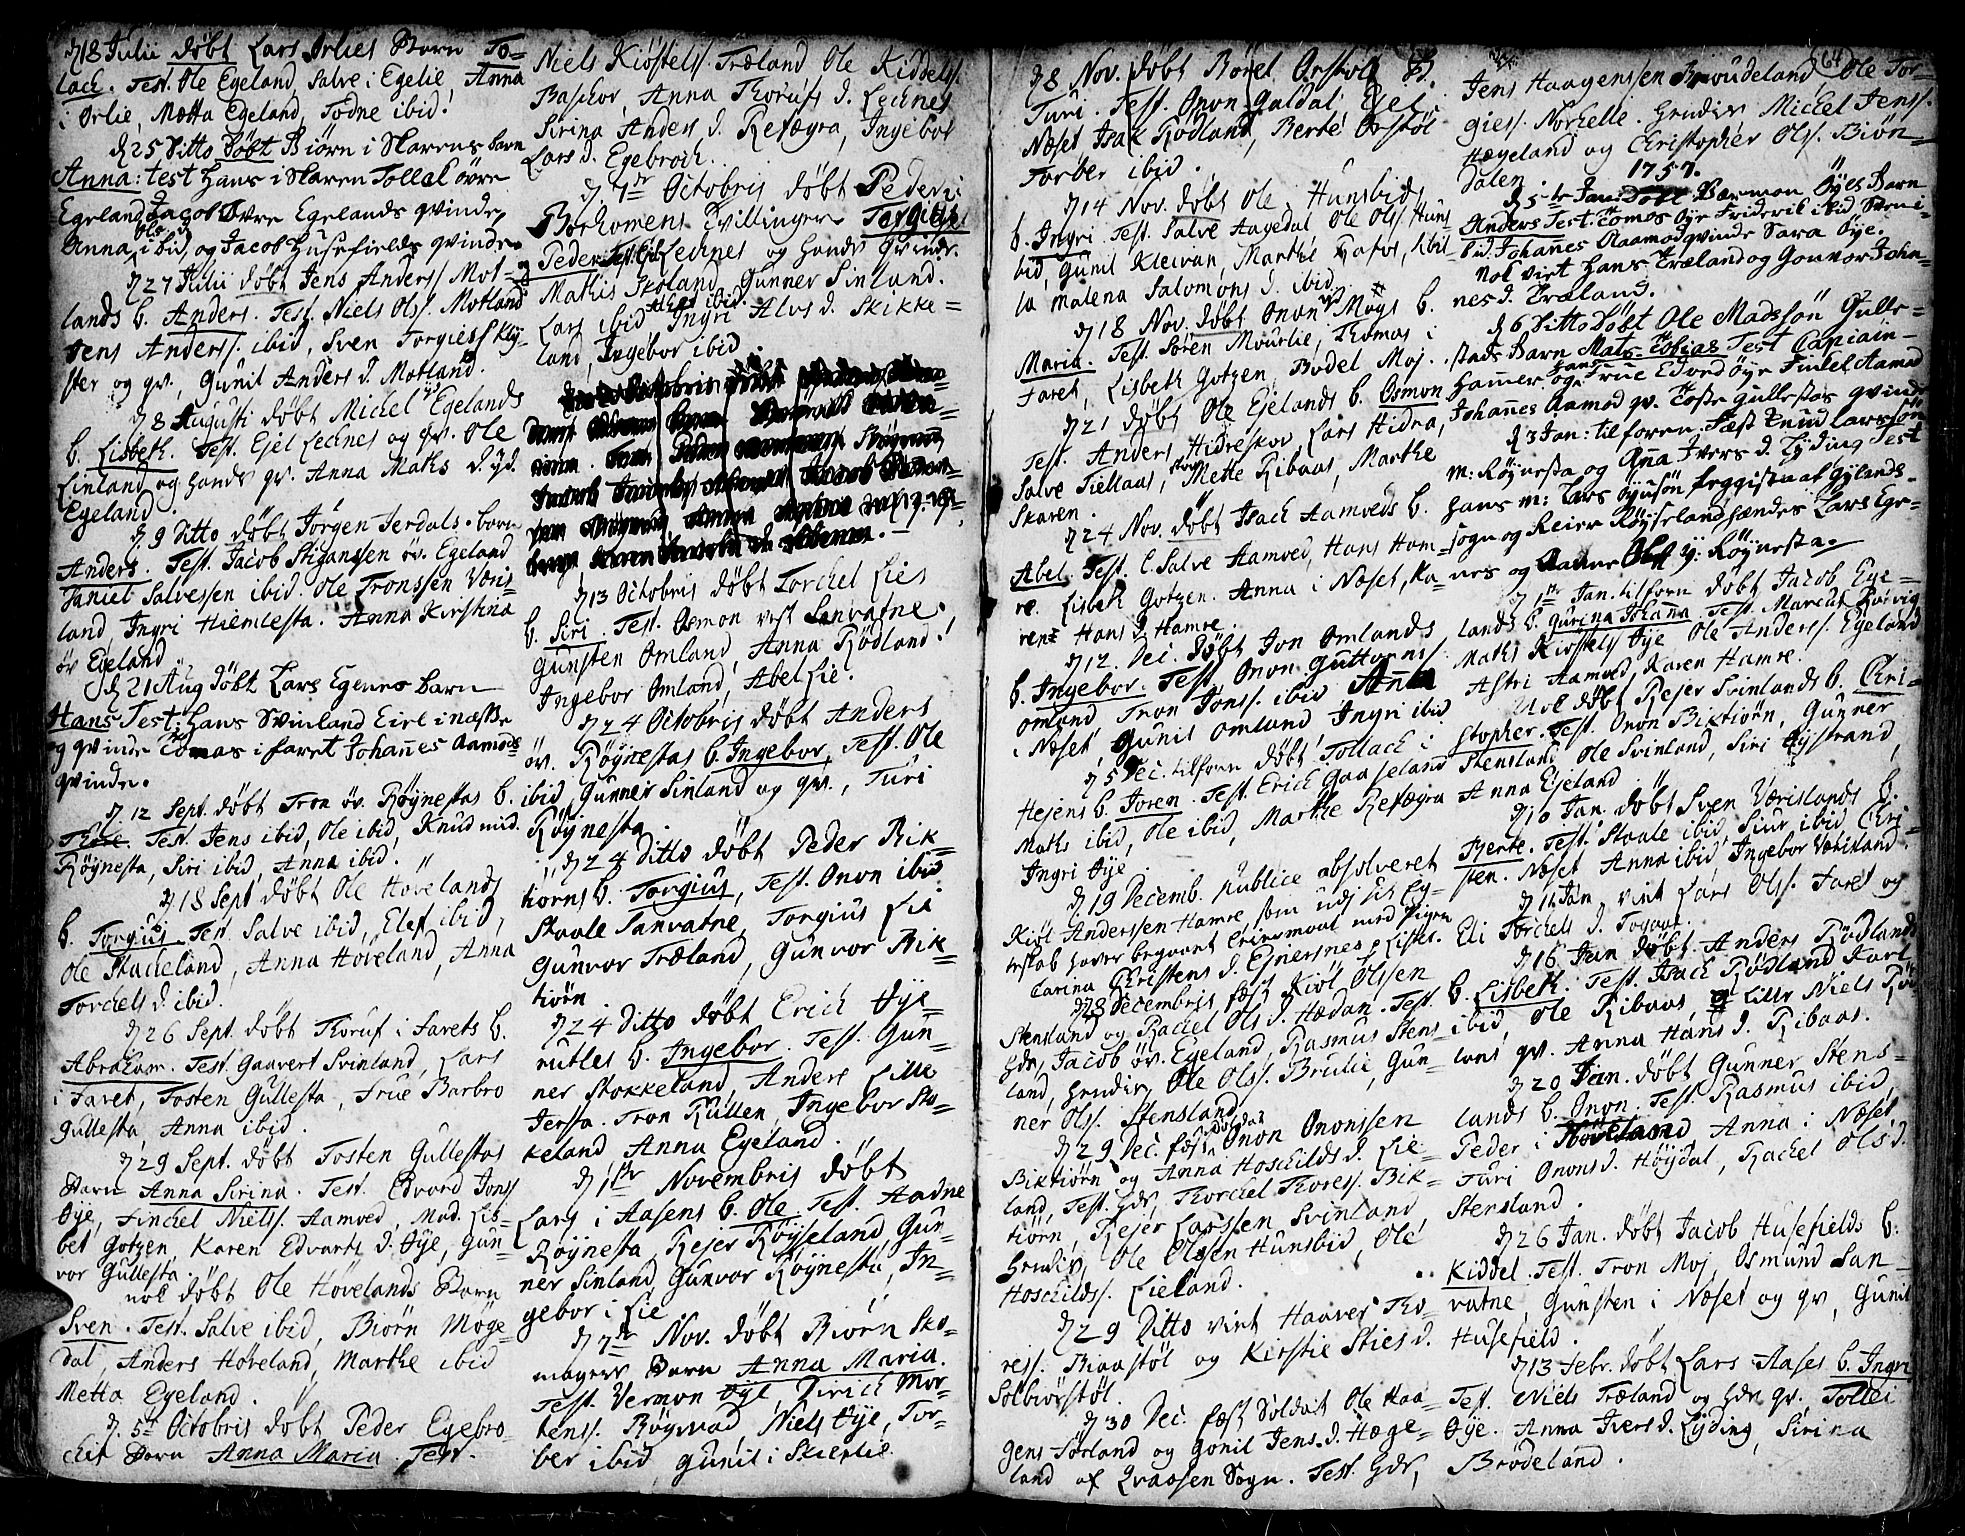 d 18 Julii døbt Lars Ørlies Barn To-
lach. Test. Ole Egeland, Salve i Egelie, Anna
i Ørlie, Mætta Egeland, Todne ibid.
d 25 Ditto Døbt Biørn i Skarens barn
Anna: test Hans i Skaren Tollak övre
Egeland Jacob Øvre Egelands qvinde
Anna ibid, og Jacob Husefields qvinde.
d 27 Julii døbt Jens Anderss. Mot-
lands b. Anders. Test. Niels Olss. Motland
Jens Anderss. ibid, Sven Torgiess. Kly-
ster og qv, Gunil Anders d. Motland.
d 8 Augusti døbt Michel Egelands
b. Lisbeth. Test. Ejel Lechnes og qv. Ole
Linland og hands qv. Anna Maths d. yd.
Egeland.
d 9 Ditto døbt Jørgen Jerdals barn
Anders. Test. Jacob Stiganssen öv. Egeland
Daniel Salvessen ibid. Ole Tronssen Væris-
land Ingri Hiemlesta. Anna Kirstina
öv Egeland
d 21 Aug døbt Lars Egenes barn
Hans Test: Hans Svinland Eirl i næsse
og qvinde Tomas i faret Johañes Aamods
qvinde.
d 12 Sept. døbt Tron öv. Røynestas b.
Thore. Test. Jens ibid, Ole ibid, Knud mid.
Røynesta, Siri ibid, Anna ibid.
d 18 Sept døbt Ole Hovelands
b. Torgius. Test. Salve ibid, Elef ibid,
Ole Stackeland, Anna Hoveland, Anna
Torchels d. ibid.
d 26 Sept. døbt Thoruf i Farets b.
Abraham. Test. Gaavert Svinland, Lars
i Faret, Tosten Gullesta, Frue Barbro
Gullesta, Anna ibid.
d 29 Sept. døbt Tosten Gullestas
Barn Anna Sirina. Test. Edvord Jons
Øye, Finchel Nielss. Aamoed, Mad. Lis-
bet Gotzen, Karen Edvarts d. Øye, Gun-
vor Gullesta.
nok døbt Ole Hövelands Barn
Sven. Test. Salve ibid, Biørn Møge-
dal, Anders Høveland, Marthe ibid
Metta Egeland.
d. 5te Octobris døbt Peder Egebro-
chs Barn Anna Maria. Test.
Niels Kiøstelss. Træland Ole Kiddelss.
Baschov, Anna Thorufs d. Lechnes
Sirina Anders d. Refægra, Ingebor
Lars d. Egebroch.
d 7de Octobris døbt Peder
Borhomens Tvillinger Torgius
og Peder Test. Ejel Lechnes og hands Qvinde.
Mathis Skoland, Gunner Sinland.
Lars ibid Ingri Alvs d. Skikke-
land, Ingebor ibid.
d 13 Octobris døbt Torchel Lies
b. Siri. Test. Osmon vest Sanvatne.
Gunsten Omland, Anna Rødland.
Ingebor Omland, Abel Lie.
d 24 Octobris døbt Anders
öv. Røynestas b. Ingebor, Test. Ole
ibid, Gunner Sinland og qv., Turi
Røynesta.
d 24 Ditto døbt Peder Bik-
tiorns b. Torgius, Test. Onon ibid
Staale Sanvatne, Torgius Lie
Gunvor Træland, Gunvor Bik-
tiørn
d 24 Ditto døbt Erich Øye-
rutles b. Ingebor. Test. Gun-
ner Stokkeland, Anders Lille
Jersa. Tron Rullen, Ingebor Sto-
keland Anna Egeland.
d 1ste Novembris døbt
Lars i Aasens b. Ole Test. Aadne
Røynesta, Rejer Røyseland, Gun-
ner Sinland, Gunvor Røynesta, In-
gebor i Lie
d 7de Nov. døbt Biørn Sko-
magers Barn Anna Maria.
Test. Vermon Øye, Dirich Mor-
tenss. Røgevad, Niels Øye, Tor-
ber ibid Gunil i Skierlie.
d 8 Nov. døbt Børel Orstöls B.
Turi. Test. Onon Galdal, Ejel
Næset Isak Rødland, Berte Orstöl
Torber ibid.
d 14 Nov. døbt Ole Hunsbids
b. Ingri. Test. Salve Aagedal Ole Olss. Huns-
bid, Gunil Kleivan, Marthe
la Malena Salomons d. ibid.
d 18 Nov. døbt Onon Møgs b.
Maria. Test. Søren Mourlie, Thomas i
Faret, Lisbeth Gotzen, Bodel Moj.
d 21 døbt Ole Ejelands b. Osmon
Test. Anders Hidreskov, Lars Hidra,
Salve Fiellaas, Mette Ribaas, Marthe
Skaren.
d 24 Nov. døbt Isach Aamoeds b.
Abel Test. L. Salve Aamoed, Hans Ham-
re. Lisbeth Gotzen. Anna i Næset, Ka-
rens Hans d. Hamre.
d 12. Dec. døbt Jon Omlands
b. Ingebor. Test. Onon Guttorms
Omland, Tron Jonss. ibid Anna
i Næset, Gunil Omland Ingri ibid
d 5 Dec. tilforn døbt Tollach i
Hejens b. Joren. Test. Erich Gaaseland
Maths ibid, Ole ibid, Marthe Refægra
Ingri Øye.
d 19 Decemb. publice absolveret
Kiøl Anderssen Hamre som udj
erskab haver begaaet Leiermaal med Pigen
Carina Christens d. Ejnersnes Lister.
d 28 Decembris fæst Kiøl Olssen
Stensland og Rachel Ols d. Hædan. Test.
hds, Jacob öv. Egeland, Rasmus Stens-
land, hendis Ole Olss. Brulie, Gun-
ner Olss. Stensland.
d 29 Dec. fæst soldat Onon Ononssen
Biktiørn og Anna Hoschilds d. Lie-
land, Test. hds Thorchel Thoress. Bik-
tiørn, Rejer Larssen Svinland
hendis Ole Olssen Hunsbid, Ole
Hoschildss. Lieland.
d 29 Ditto viet Haaver Tho-
ress. Biaastöl og Kirstie Sties d.
Solbiørstöl.
d 30 Dec. fæst Soldat Ole Haa-
gens Førland og Gonil Jens d. Hæge-
land af Qvaasen Sogn. Test. hds,
64
Jens Haagenssen Broudeland, Ole Tor-
giess. Norhelle. hendis, Michel Jenss.
Hægeland og Christopher Olss. Biørn-
dalen. 1757.
d 5te Jan: døbt Værmon Øyes Barn
Anders Test: Tomas Øye Friderik ibid
ibid Johañes Aaamod qvinde Sara Øye.
Nok viet Hans Træland og Gonvor John-
nes d. Træland.
d 6 Ditto Døbt Ole Madssøn Gulle-
stads Barn Mats Tobias Test Capiain
Hamer og Hans Frue Edvard Øye Finkel Aamod
Johañes Aamod qv. Toste Gullestas qvinde
d 3 Jan: tilforen. Fæst Knud Larssøn
m. Røynesta og Aña Ivers d. Lyding Test
hans m: Lars Gylands-
sogn og Reier Røyseland hændes Lars Ege-
nes og Aanne Ole y: Røynesta.
d 1ste Jan. tilforn døbt Jacob Ege-
lands b. Gurina Johana Test. Marcus Rørvig
Maths Kiøstels Øye Ole Anderss. Egeland
Astri Aamoed, Karen Hamre.
Nok døbt Rejer Svinlands b. Chri-
stopher. Test. Onon Biktiørn, Gunner
Stensland Ole Svinland, Siri Øystrand,
Anna Egeland
d 10 Jan. døbt Sven Værislands b.
Berte. Test. Staale ibid, Siur ibid Chri-
sten. Næset Anna ibid Ingebor Værisland.
d 14 Jan. viet Lars Olss. Faret og
Eli Torchels d.
d 16 Jan døbt Anders Rødlands
b. Lisbeth. Test. Isach Rødland Karl
ibid, Ole Ribaas, Lille Niels Rød-
lans qv. Anna Hans d. Ribaas.
d 20 Jan. døbt Gunner Stens-
lands b. Onon. Test. Rasmus ibid,
Peder i Høveland Anna i Næset
Turi Onons d. Høydal, Rachel Ols d.
Stensland.
d 26 Jan. døbt Jacob Husefields b.
Kiddel. Test. Tron Moj Osmund San-
vatne, Gunsten i Næset og qv, Gunil
Husefield.
d 13 Febr. døbt Lars Aases b. Ingri
Test. Niels Træland og hds qv. Tollei
Øye. Anna Ivers d. Lyding, Sirina
Brødeland.